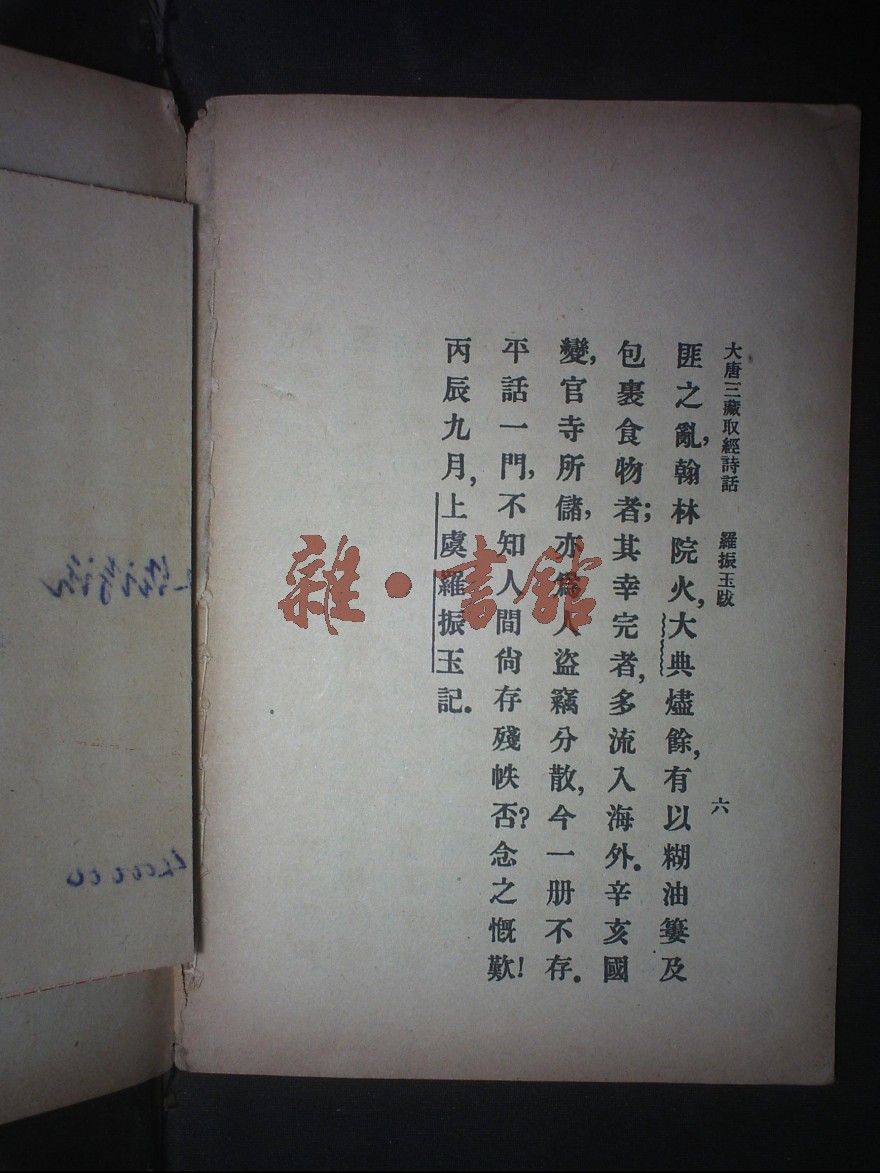 大唐三藏取經詩話　羅振玉跋　六
匪之亂，翰林院火，大典燼餘，有以糊油簍及
包裹食物者；其幸完者，多流入海外。辛亥國
變，官寺所儲，亦爲人盜竊分散，今一册不存。
平話一門，不知人間尙存殘帙否？念之慨歎！
丙辰九月，上虞羅振玉記。
雜·書館